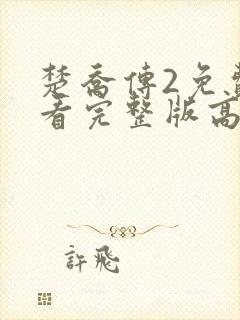 楚喬傳2免費
看完整版高
許飛